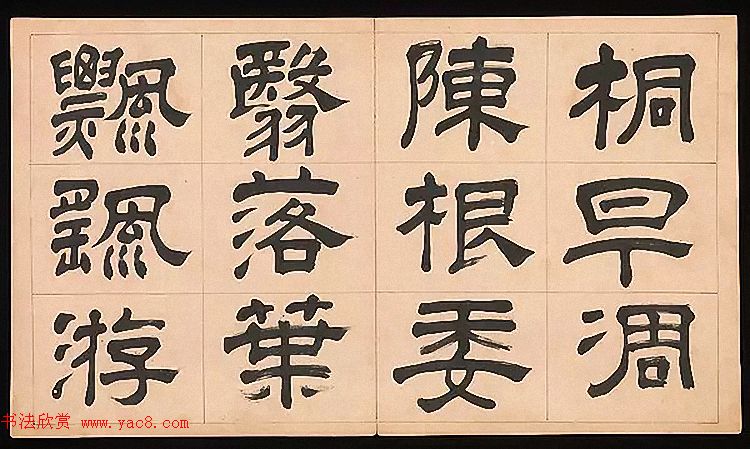 桐早凋
陳根委
翳落葉
飄颻游
书法欣赏 www.yac8.com